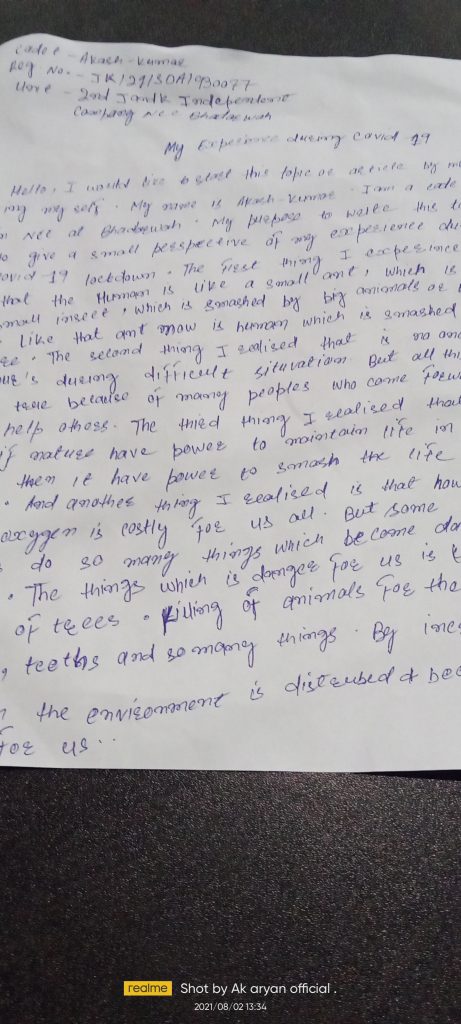 Cadet - Akash Kumar
Reg No. - JK/21/SDA/930077
Unit - 2nd JandK Independent
Company NCC Bhadarwah
My Experience during Covid-19
Hello, I would like to start this topic or article by
my self. My name is Akash Kumar. I am a cade
NCC at Bhadrawah. My purpose to write this
give a small perspective of my experience du
ovid-19 lockdown. The first thing I experience
that the Human is like a small ant, which is
mall insect, which is smashed by big animals or
Like that ant now is human which is smashed
The second thing I realised that is no one
our's during difficult situvation. But all thi
true because of many peoples who come forw
help others. The third thing I realised that
if nature have power to maintain life in
then it have power to smash the life
. And another thing I realised is that how
oxygen is costly for us all. But some
do so many things which become dan
. The things which is danger for us is
of trees. Killing of animals for the
, teeths and so many things. By
the environment is disterubed & bec
for us..
realme Shot by Ak aryan official .
2021/08/02 13:34